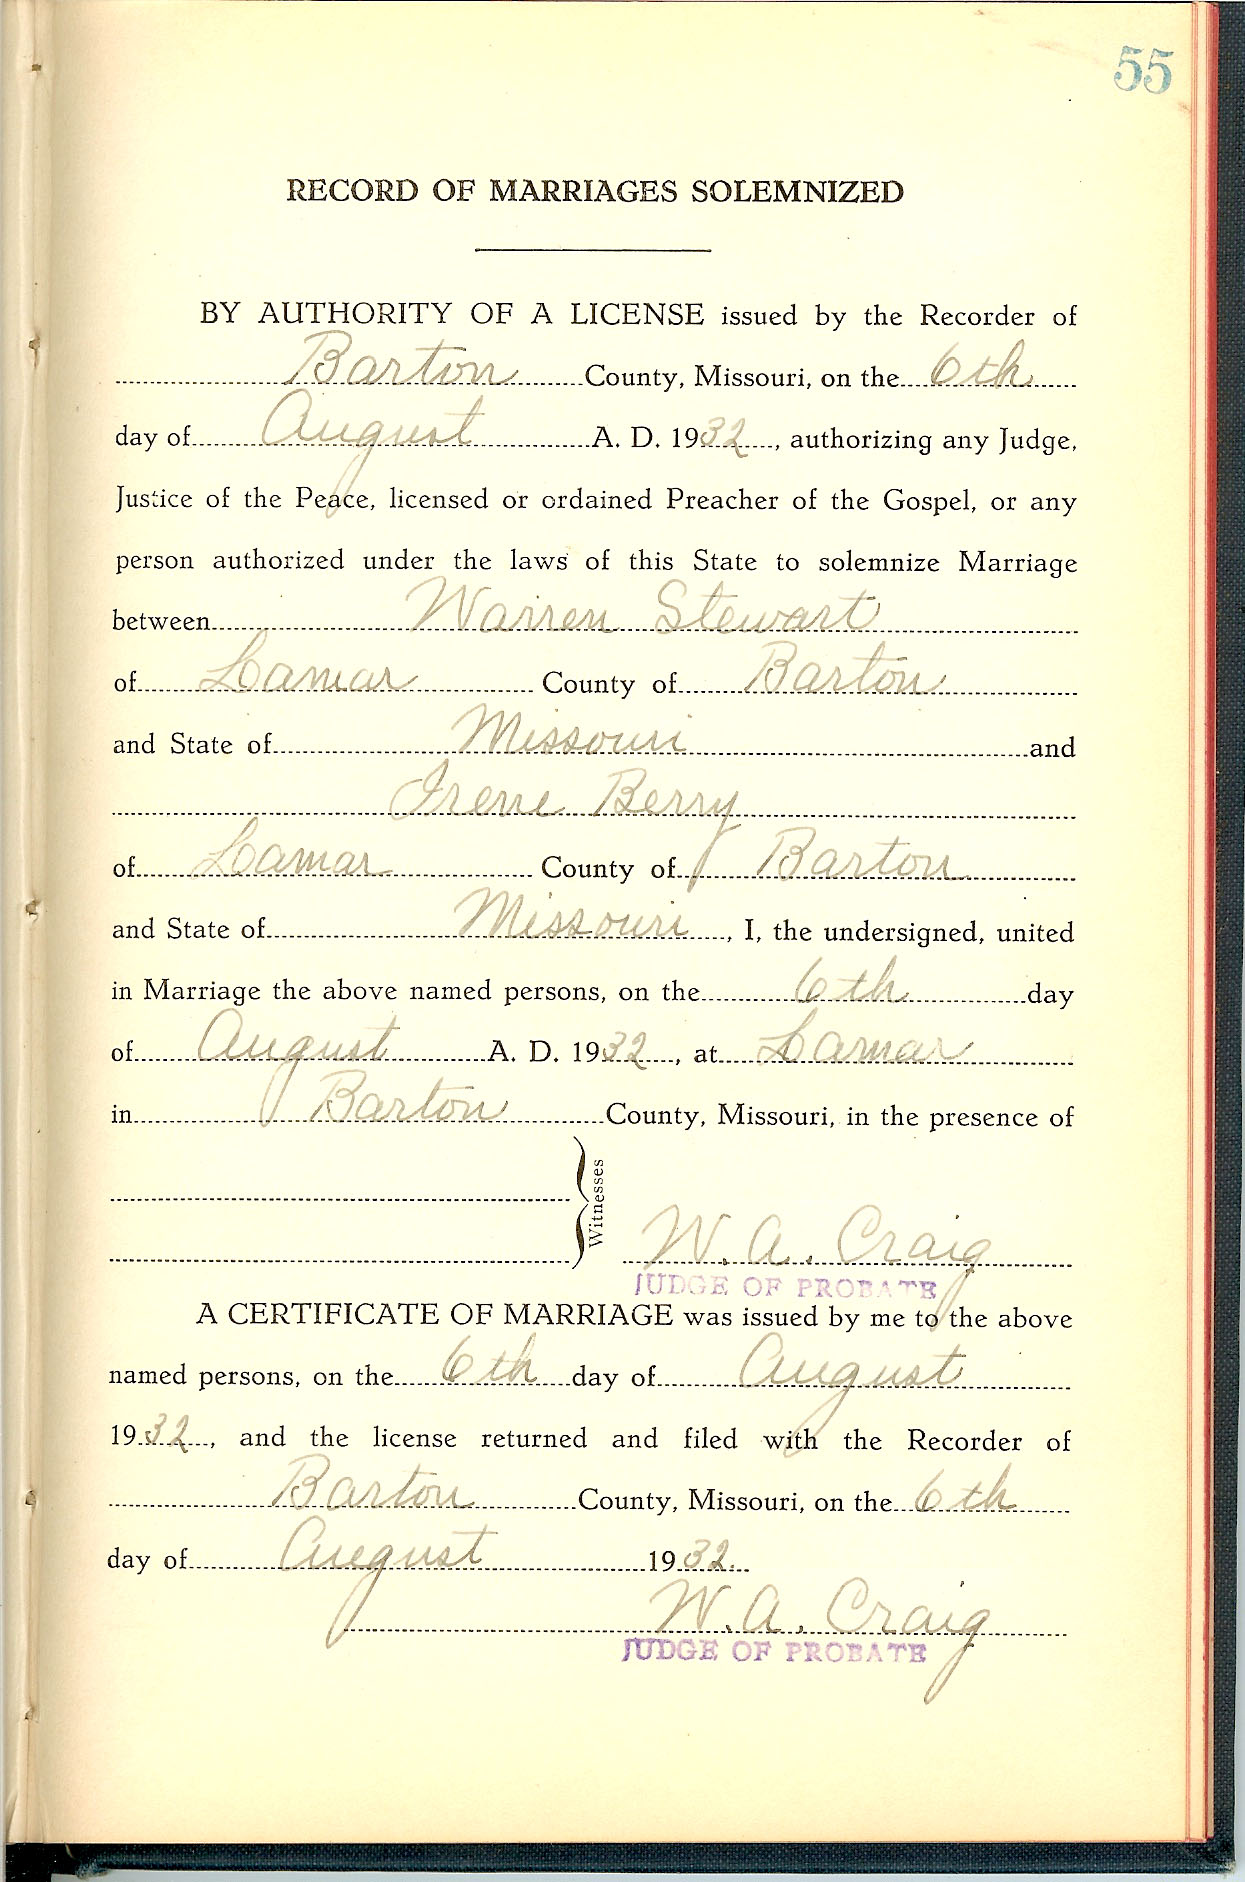 55
RECORD OF MARRIAGES SOLEMNIZED
BY AUTHORITY OF A LICENSE issued by the Recorder of
Barton County, Missouri, on the 6th
day of August A. D. 1932, authorizing any Judge,
Justice of the Peace, licensed or ordained Preacher of the Gospel, or any
person authorized under the laws of this State to solemnize Marriage
between Warren Stewart
of Lamar County of Barton
and State of Missouri and
Irene Berry
of Lamar County of Barton
and State of Missouri, I, the undersigned, united
in Marriage the above named persons, on the 6th day
of August A. D. 1932, at Lamar
in Barton County, Missouri, in the presence of
Witnesses
W. A. Craig
JUDGE OF PROBATE
A CERTIFICATE OF MARRIAGE was issued by me to the above
named persons, on the 6th day of August
1932, and the license returned and filed with the Recorder of
Barton County, Missouri, on the 6th
day of August 1932.
W. A. Craig
JUDGE OF PROBATE